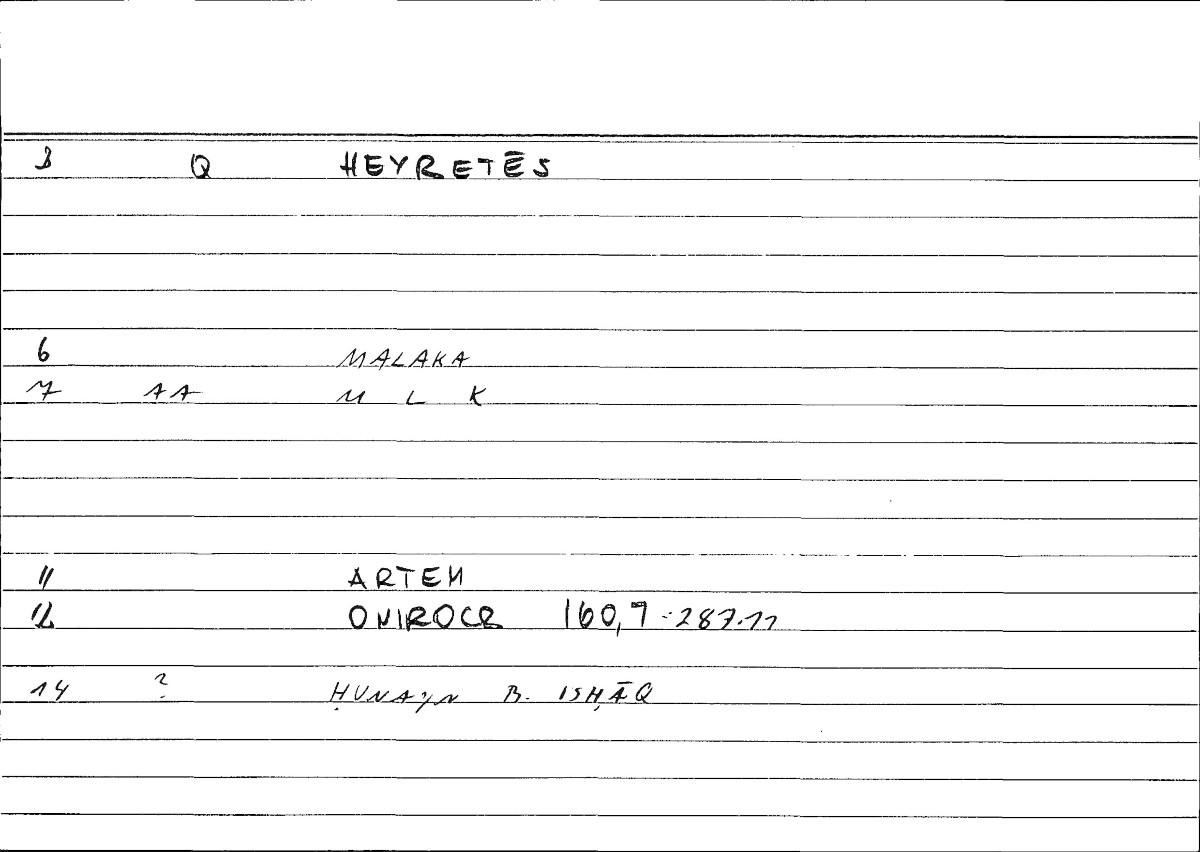 3 Q HEYRETĒS
6 MALAKA
7 AA M L K
11 ARTEM
12 ONIROCR 160,7 = 287.11
14 ? ḤUNAYN B. ISḤĀQ